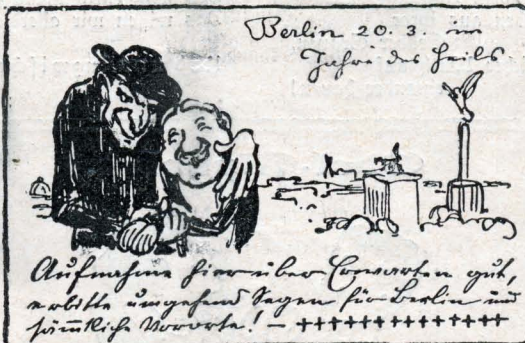 Berlin 20. 3. im
Jahre des Heils
Aufnahme hier über Erwarten gut,
erbitte umgehend Segen für Berlin und
sämtliche Vororte! – +++++++++++++